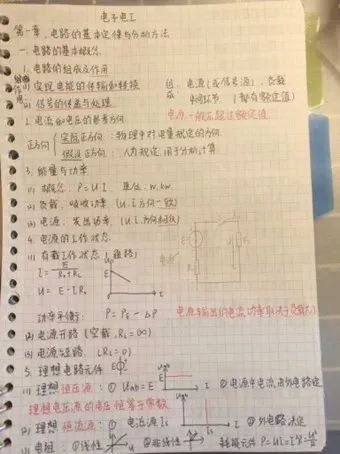 电子电工
第一章、电路的基本定律与分析方法
一、电路的基本概念
1. 电路的组成及作用
作用
(1) 实现电能的传输和转换
(2) 信号的传递与处理
组成：电源（或信号源）、负载
中间环节（都有额定值）
电源一般不超过额定值
2. 电流和电压的参考方向
正方向
实际正方向：物理中对电量规定的方向
假设正方向：人为规定，用于分析计算
3. 能量与功率
(1) 概念：P=UI 单位：w, kw
(2) 负载：吸收功率（U. I方向一致）
(3) 电源：发出功率（U. I方向相反）
4. 电源的工作状态
(1) 有载工作状态（通路）
I = E/(R₀+R_L)
U = E - IR₀
功率平衡：P = P_E - ΔP
电源输出的电流功率取决于负载大小
(2) 电源开路（空载，R_L=∞）
(3) 电源短路（R_L=0）
5. 理想电路元件
(1) 理想恒压源：① Uab=E ② 电源中电流由外电路定
理想电压源的电压恒等于常数
(2) 理想恒流源：① 电流源 Is ② 外电路决定
(3) 电阻：① 线性 ② 非线性 耗能元件 P=UI=I²R=U²/R